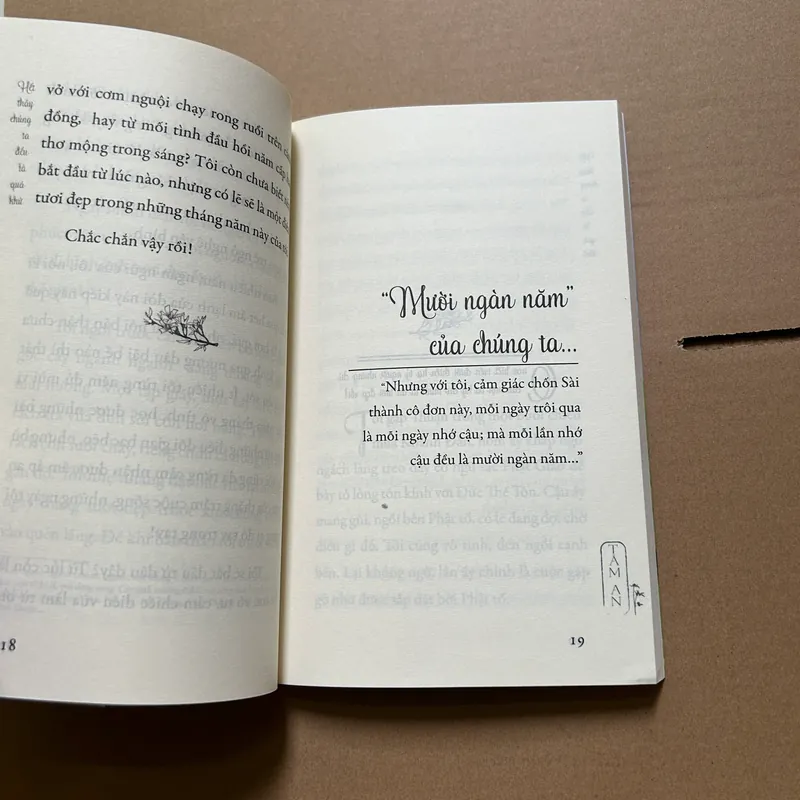 Hết
thảy
chúng
ta
đều
là
quá
khứ
vở với cơm nguội chạy rong ruổi trên
đồng, hay từ mối tình đầu hồi năm cấp
thơ mộng trong sáng? Tôi còn chưa biết
bắt đầu từ lúc nào, nhưng có lẽ sẽ là một
tươi đẹp trong những tháng năm này của
Chắc chắn vậy rồi!
18
“Mười ngàn năm”
của chúng ta...
“Nhưng với tôi, cảm giác chốn Sài
thành cô đơn này, mỗi ngày trôi qua
là mỗi ngày nhớ cậu; mà mỗi lần nhớ
cậu đều là mười ngàn năm...”
TÂM AN
19